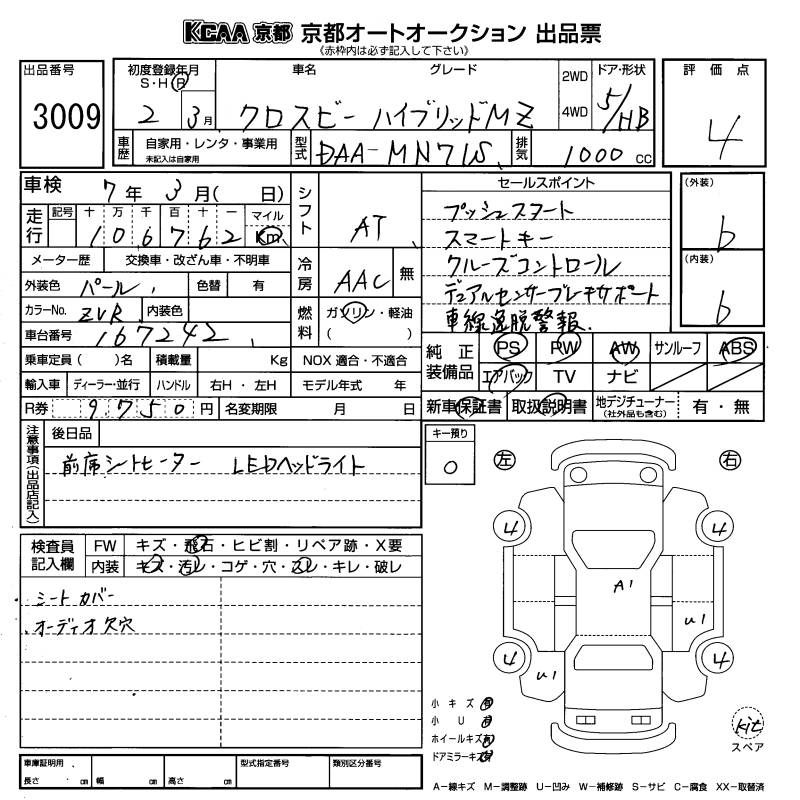 KCAA 京都 京都オートオークション 出品票
《赤枠内は必ず記入して下さい》
出品番号
3009
初度登録年月
S・H・R
2 3月
車名 グレード
クロスビー ハイブリッドMZ
2WD
4WD
ドア・形状
5/HB
評価点
4
車歴
自家用・レンタ・事業用
未記入は自家用
型式
DAA-MN71S
排気
1000 CC
車検
7年 3月( 日)
走行
記号 十 万 千 百 十 一 マイル
1 0 6 7 6 2 Km
メーター歴 交換車・改ざん車・不明車
外装色 パール 色替 有
カラーNo. ZVR 内装色
車台番号 167242
乗車定員 ( )名 積載量 Kg NOX 適合・不適合
輸入車 ディーラー・並行 ハンドル 右H・左H モデル年式 年
R券 9750円 名変期限 月 日
シフト AT
冷房 AAC 無
燃料 ガソリン・軽油
( )
セールスポイント
プッシュスタート
スマートキー
クルーズコントロール
デュアルセンサーブレーキサポート
車線逸脱警報
(外装)
b
(内装)
b
純正装備品
PS PW AW サンルーフ ABS
エアバック TV ナビ
新車保証書 取扱説明書 地デジチューナー(社外品も含む) 有・無
注意事項(出品店記入)
後日品
前席シートヒーター LEDヘッドライト
キー預り
0
左 右
4 4
A1
U1
4 4
U1
検査員記入欄
FW キズ・飛石・ヒビ割・リペア跡・X要
内装 キズ・汚レ・コゲ・穴・スレ・キレ・破レ
・シートカバー
・オーディオ欠穴
小キズ 有
小U 有
ホイールキズ 有
ドアミラーキズ 有
kit
スペア
車庫証明用
長さ cm 幅 cm 高さ cm
型式指定番号 類別区分番号
A-線キズ M-調整跡 U-凹み W-補修跡 S-サビ C-腐食 XX-取替済